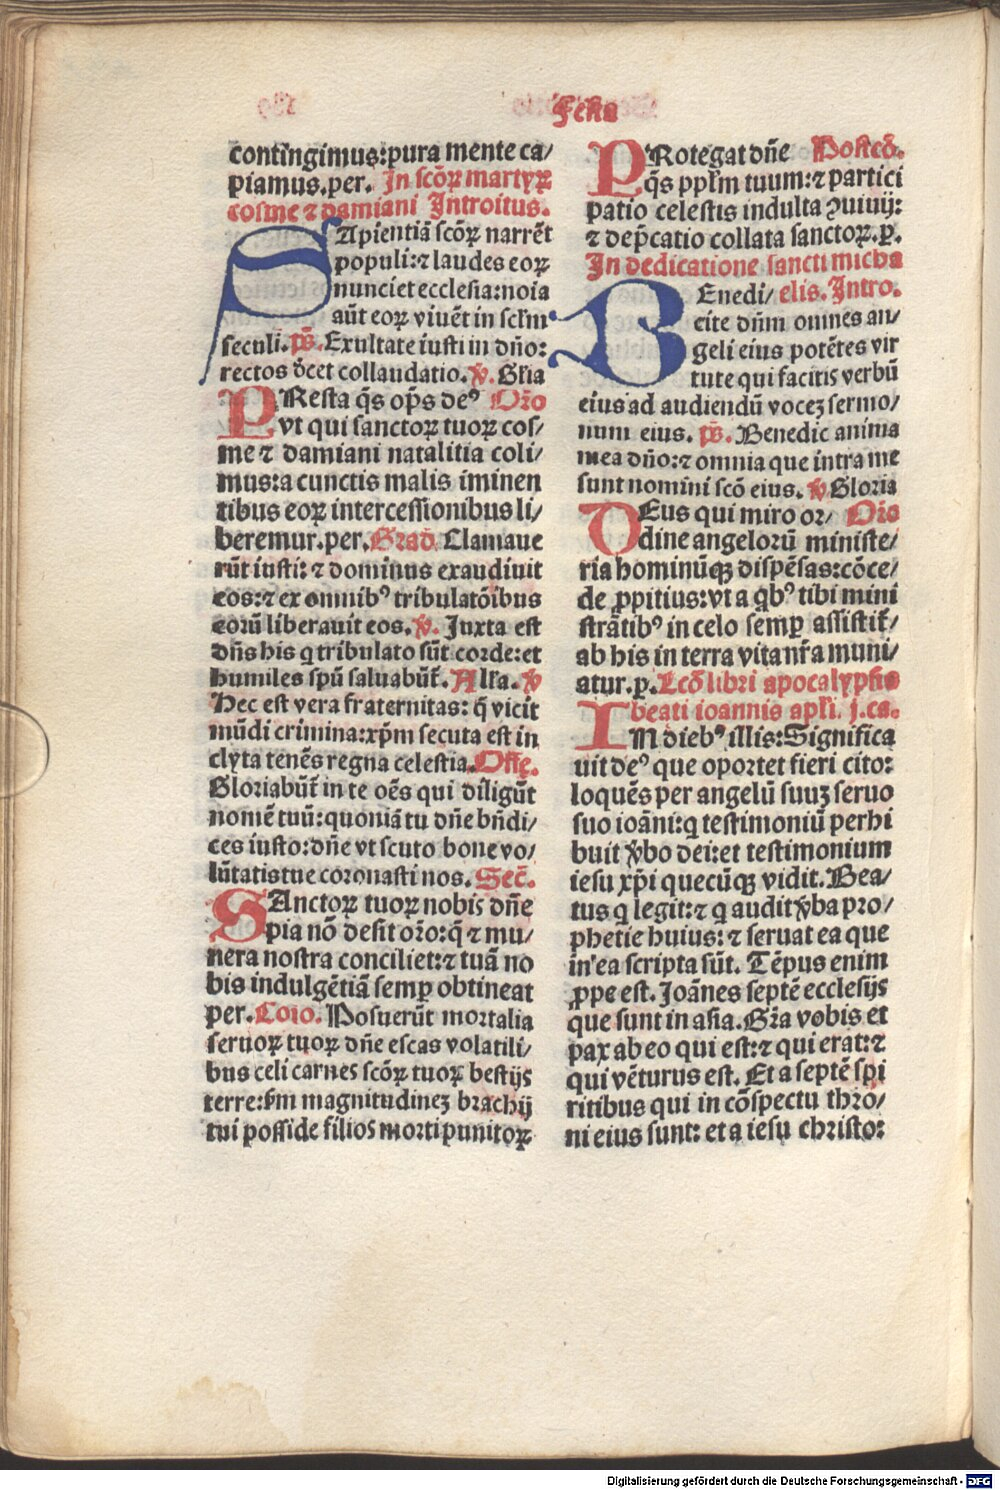 Festa
contingimus:pura mente ca/
piamus.per. In scõꝝ martyꝝ
cosme ⁊ damiani Introitus.
SApientiã scõꝝ narrẽt
populi:⁊ laudes eoꝝ
nunciet ecclesia:noĩa
aũt eoꝝ viuẽt in scl̃m
seculi. p̃s. Exultate iusti in dño:
rectos dꝫcet collaudatio. ℣. Gl̃ia
PResta q̃s op̃s deꝰ Orõ
vt qui sanctoꝝ tuoꝝ cos/
me ⁊ damiani natalitia coli/
mus:a cunctis malis imminen
tibus eoꝝ intercessionibus li/
beremur.per. Grad̃. Clamaue
rũt iusti: ⁊ dominus exaudiuit
eos:⁊ ex omnibꝰ tribulatõibus
eorũ liberauit eos. ℣. Juxta est
dñs his q tribulato sũt corde:et
humiles sp̃u saluabũt̃. All̃a. ℣
Hec est vera fraternitas: q̃ vicit
mũdi crimina:xp̃m secuta est in
clyta tenẽs regna celestia. Offe.
Gloriabũt̃ in te oẽs qui diligũt
nomẽ tuũ:quoniã tu dñe bñdi/
ces iusto:dñe vt scuto bone vo/
lũtatis tue coronasti nos. Sec̃.
SAnctoꝝ tuoꝝ nobis dñe
pia nõ desit orõ:q̃ ⁊ mu/
nera nostra conciliet:⁊ tuã no
bis indulgẽtiã semꝑ obtineat
per. Coĩo. Posuerũt mortalia
seruoꝝ tuoꝝ dñe escas volatili/
bus celi carnes scõꝝ tuoꝝ bestijs
terre:s̃m magnitudineꝫ brachij
tui posside filios mortipunitoꝝ
PRotegat dñe Postcõ.
q̃s pp̃lm tuum:⁊ partici
patio celestis indulta ꝯuiuij:
⁊ dep̃catio collata sanctoꝝ.p̃.
In dedicatione sancti micha
BEnedi/ elis. Intro.
cite dñm omnes an/
geli eius potẽtes vir
tute qui facitis verbũ
eius ad audiendũ voceꝫ sermo/
num eius. p̃s. Benedic anima
mea dño:⁊ omnia que intra me
sunt nomini scõ eius. ℣ Gloria
DEus qui miro or/ Orõ
dine angelorũ ministe/
ria hominũqꝫ dispẽsas:cõce/
de ꝓpitius:vt a qbꝰ tibi mini
strãtibꝰ in celo semꝑ assistit̃/
ab his in terra vita nr̃a muni/
atur.p̃. Lcõ libri apocalypsis
beati ioannis apl̃i. j.ca.
IN diebꝰ illis:Significa
uit deꝰ que oportet fieri cito:
loquẽs per angelũ suuꝫ seruo
suo ioãni:q testimoniũ perhi
buit v̾bo dei:et testimonium
iesu xp̃i quecũqꝫ vidit. Bea/
tus q legit:⁊ q audit v̾ba pro/
phetie huius: ⁊ seruat ea que
in ea scripta sũt. Tẽpus enim
ꝓpe est. Joãnes septẽ ecclesijs
que sunt in asia. Gr̃a vobis et
pax ab eo qui est:⁊ qui erat:⁊
qui vẽturus est. Et a septẽ spi
ritibus qui in cõspectu thro/
ni eius sunt: et a iesu christo:
Digitalisierung gefördert durch die Deutsche Forschungsgemeinschaft - DFG